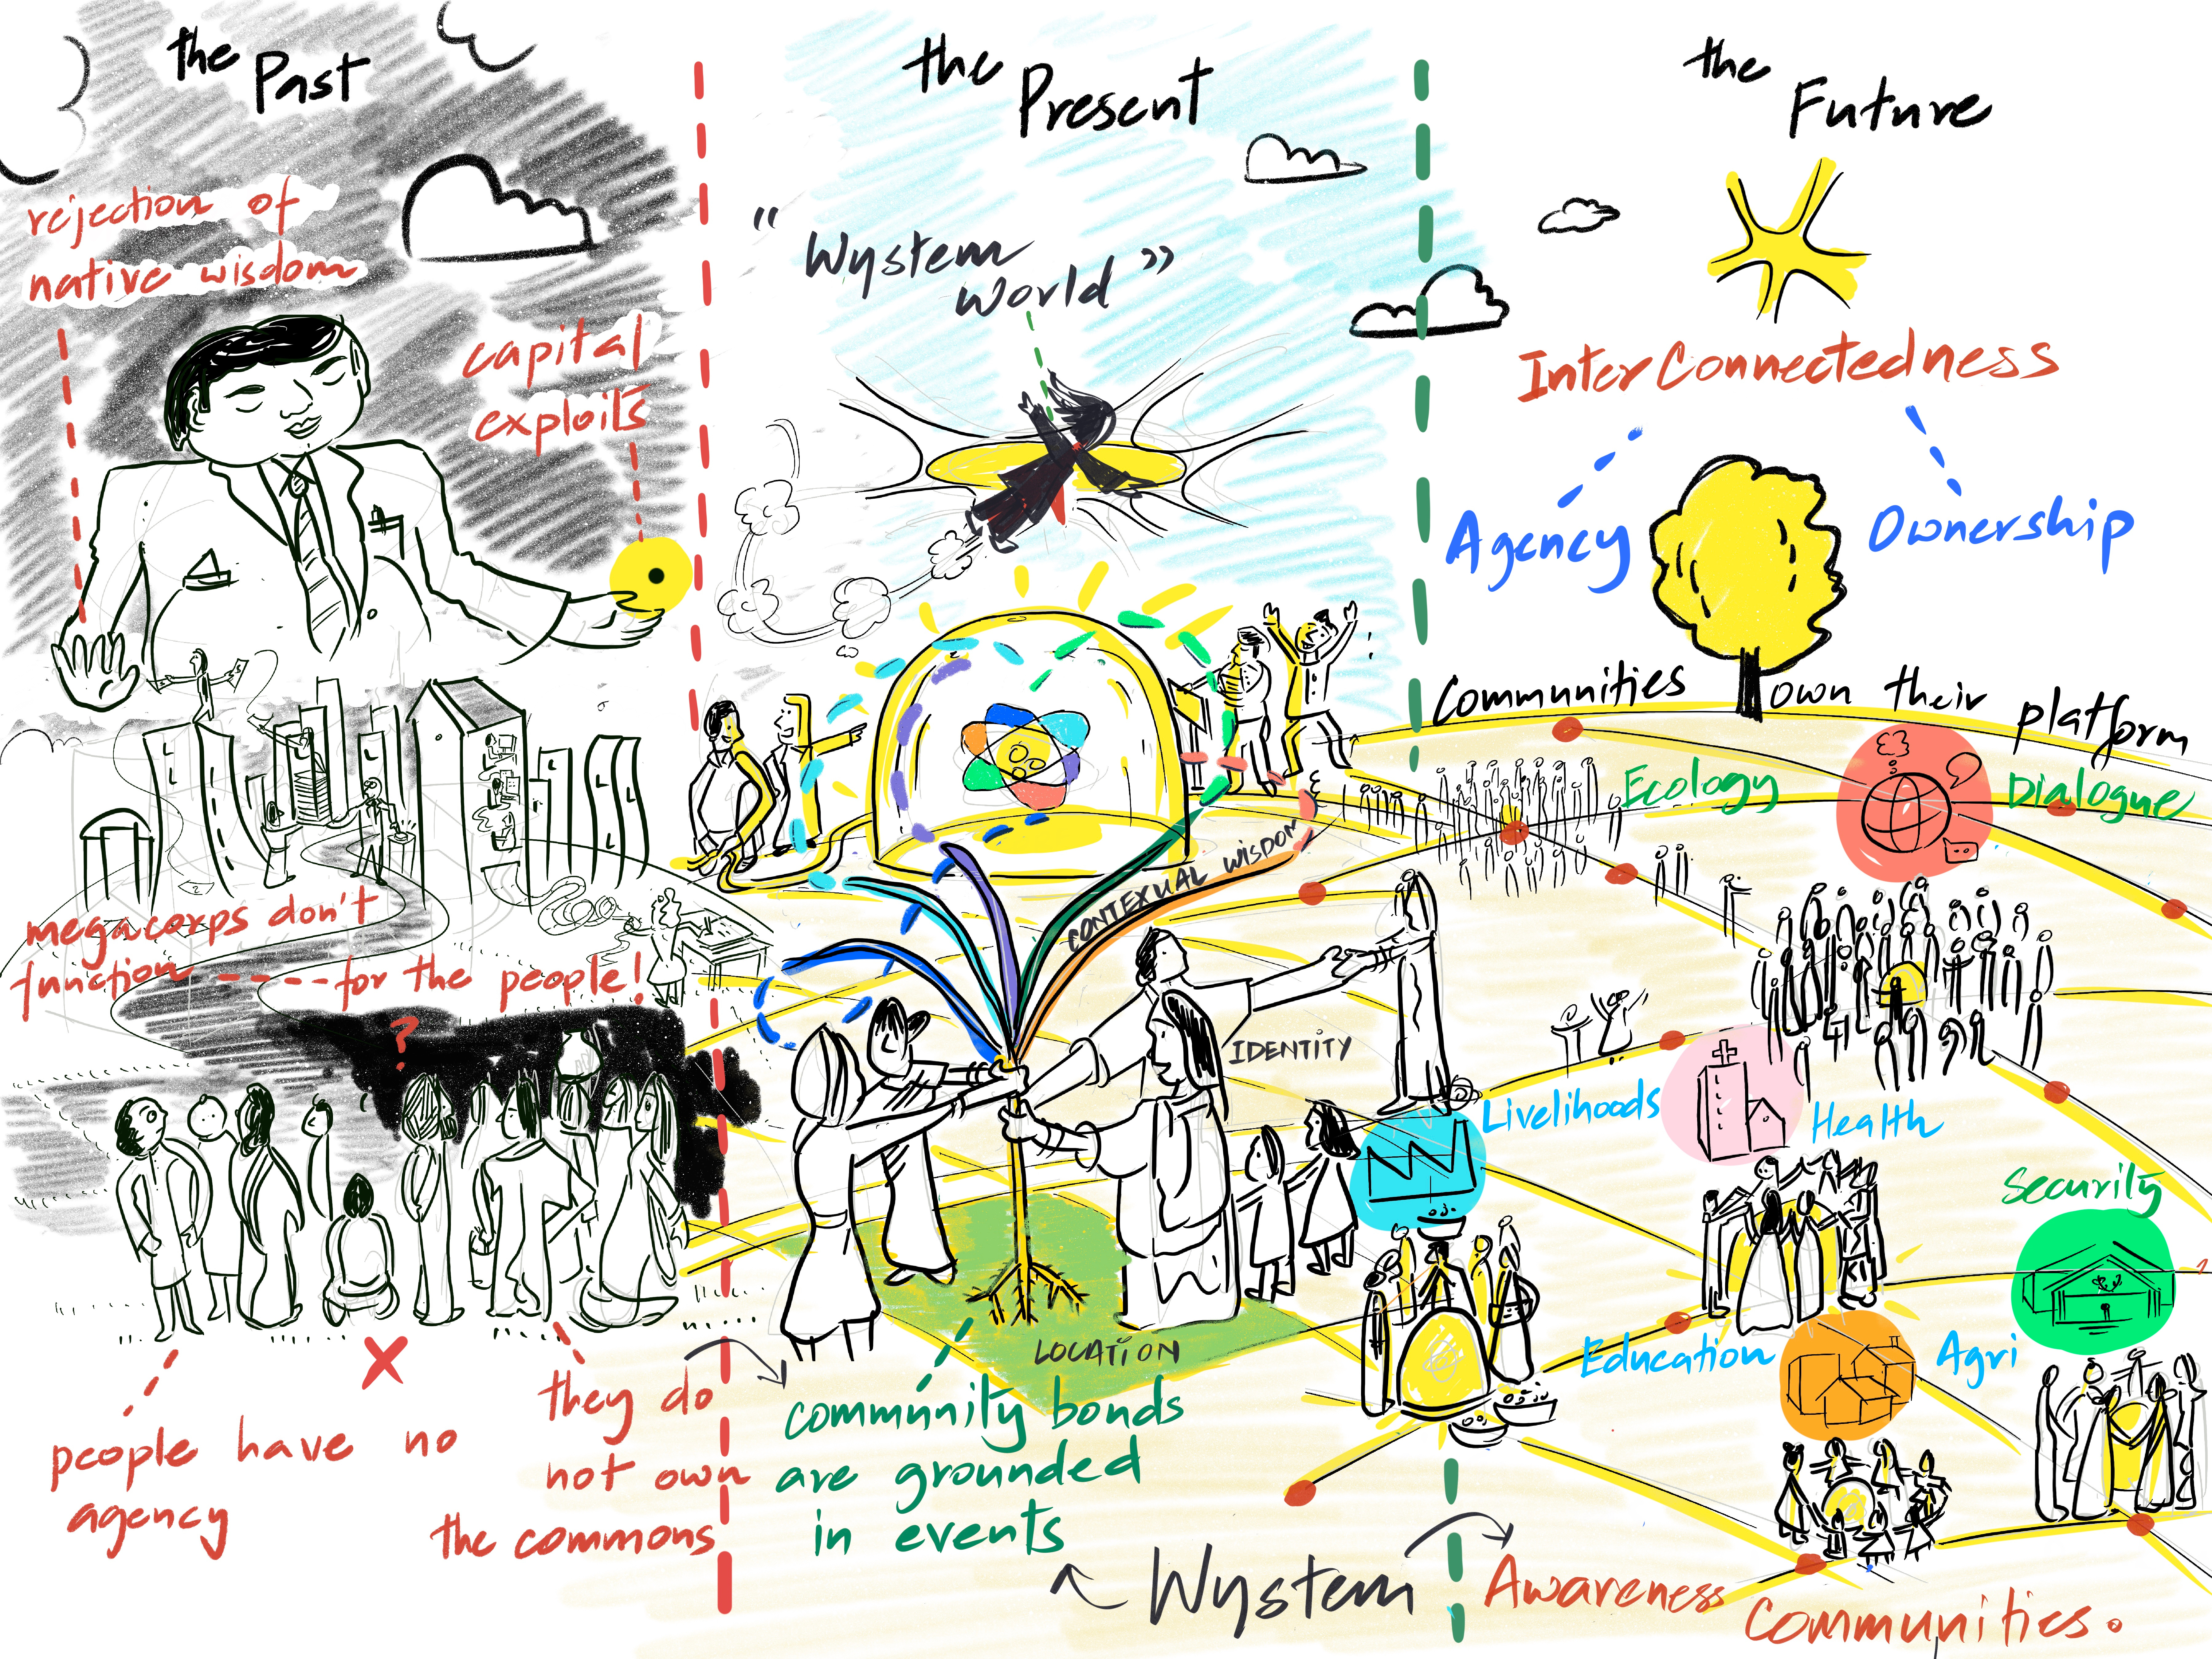 the Past
rejection of
native wisdom
capital
exploits
megacorps don't
function ----for the people!
?
people have no
agency
they do
not own
the commons
the Present
"Wystem
World"
CONTEXUAL WISDOM
IDENTITY
LOCATION
community bonds
are grounded
in events
Wystem
the Future
InterConnectedness
Agency
Ownership
Communities own their platform
Ecology
Dialogue
Livelihoods
Health
Security
Education
Agri
Awareness
Communities.